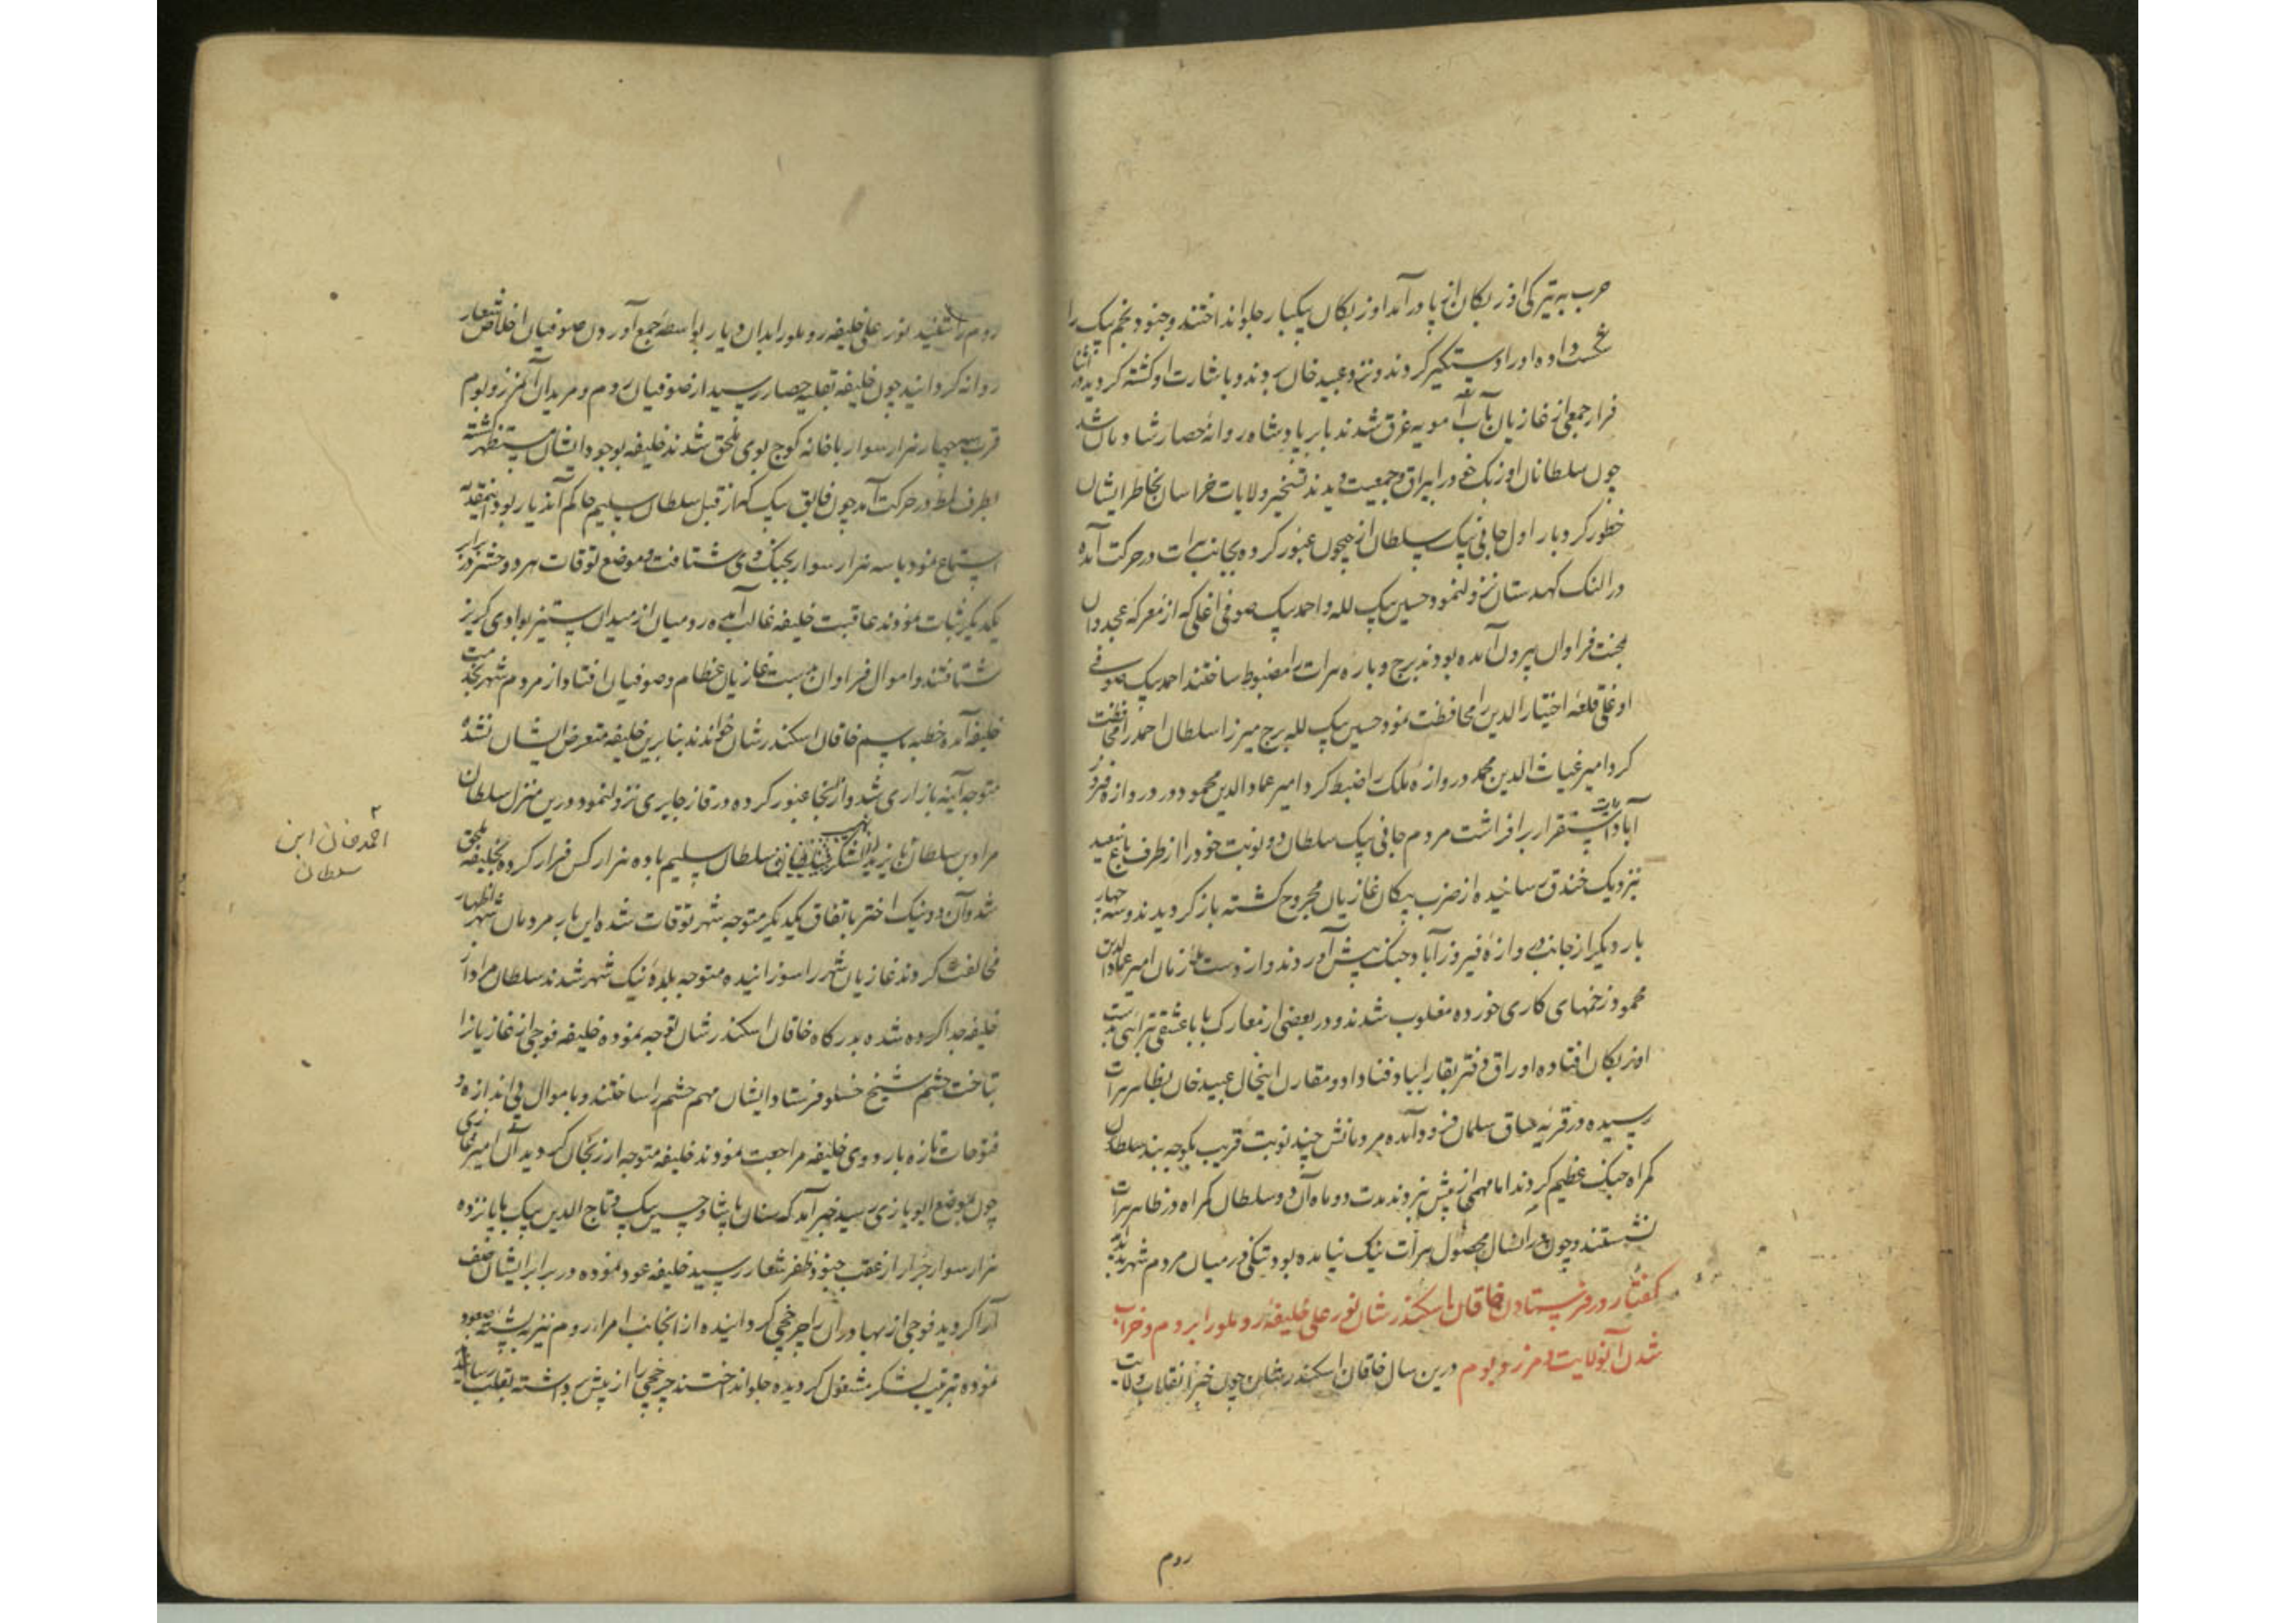 حرب به تیر یکی از اوزبکان از پا درآمد اوزبکان بیکبار جلو انداختند و جنود نجم بیک را
شکست داده او را دستگیر کردند و نزد عبید خان بردند و باشارت او کشته کردید در اثنا
فرار جمعی از غازیان بآب آمویه غرق شدند بابر پادشاه روانه حصار شادمان شد
چون سلطانان اوزبک خود را با یراق و جمعیت دیدند تسخیر ولایات خراسان بخاطر ایشان
خطور کرد بار اول جانی بیک سلطان از جیحون عبور کرده بجانب هرات در حرکت آمده
در النک کهدستان نزول نمود حسین بیک لله و احمد بیک صوفی اغلی که از معرکه عجدوان
بمحنت فراوان بیرون آمده بودند برج و باره هرات را مضبوط ساختند احمد بیک صوفی
اوغلی قلعه اختیارالدین را محافظت نمود حسین بیک لله برج میرزا سلطان احمد را محافظت
کرد امیر غیاث الدین محمد دروازه ملک را ضبط کرد امیر عمادالدین محمود در دروازه فیروز
آباد رایت استقرار برافراشت مردم جانی بیک سلطان دو نوبت خود را از طرف باغ سعید
بنزدیک خندق رسانیده از ضرب پیکان غازیان مجروح کشته باز کردیدند و سه چهار
بار دیکر از جانب دروازه فیروزآباد جنک پیش آوردند و از دست ملازمان امیر عمادالدین
محمود زخمهای کاری خورده مغلوب شدند و در بعضی از معارک بابا عشقی تبرائی بدست
اوزبکان افتاده اوراق دفتر بقا را بباد فنا داد و مقارن اینحال عبید خان بظاهر هرات
رسیده در قریه ساق سلمان فرود آمده مردمانش چند نوبت قریب بکوچه بند سلطان
کمراه جنک عظیم کردند اما مهمی از پیش نبردند مدت دو ماه آن دو سلطان کمراه در ظاهر هرات
نشستند و چون در آنسال محصول هرات نیک نیامده بود تنکی در میان مردم شهر پدید آمد
کفتار در فرستادن خاقان اسکندر شان نور علی خلیفه روملو را بروم و خراب
شدن آنولایت و مرز و بوم درین سال خاقان اسکندر شان چون خبر انقلاب ولایت
روم
روم را شنید نور علی خلیفه روملو را بدان دیار بواسطه جمع آوردن صوفیان اخلاص شعار
روانه کردانید چون خلیفه بقلیه حصار رسید از صوفیان روم و مریدان آن مرز و بوم
قرب سه چهار هزار سوار با خانه کوچ بوی ملحق شدند خلیفه بوجود ایشان مستظهر کشته
بطرف ملط در حرکت آمد چون فایق بیک که از قبل سلطان سلیم حاکم آندیار بود اینمقدمه
استماع نمود با سه هزار سوار بجنک وی شتافت در موضع توقات هر دو حشر در برابر
یکدیکر ثبات نمودند عاقبت خلیفه غالب آمده رومیان از میدان ستیز بوادی کریز
شتافتند و اموال فراوان بدست غازیان عظام و صوفیان افتاد و از مردم شهر بخدمت
خلیفه آمده خطبه باسم خاقان اسکندر شان خواندند بنابرین خلیفه متعرض ایشان نشده
متوجه آینه بازاری شد و از آنجا عبور کرده در قاز چایری نزول نمود و درین منزل سلطان
مراد بن سلطان بایزید از نهیب لشکر سلطان سلیم با ده هزار کس فرار کرده بخلیفه ملحق
شد و آن دو نیک اختر باتفاق یکدیکر متوجه شهر توقات شده این بار مردمان شهر اظهار
مخالفت کردند غازیان شهر را سوزانیده متوجه بلده نیک شهر شدند سلطان مراد از
خلیفه جدا کرده شده بدرکاه خاقان اسکندر شان توجه نموده خلیفه فوجی از غازیانرا
بتاخت چشم شیخ خسلو فرستاد ایشان مهم چشم را ساختند و با موال بی اندازه و
فتوحات تازه باردوی خلیفه مراجعت نمودند خلیفه متوجه ارزنجان کردید آن امیر غازی
چون بموضع ایویازی رسید خبر آمد که سنان پاشا و حسین بیک و تاج الدین بیک با پانزده
هزار سوار جرار از عقب جنود ظفر شعار رسید خلیفه عود نموده در برابر ایشان صف
آرا کردید فوجی از بهادران را چرخچی کردانیده از آنجانب امراء روم نیز به پشته صعود
نموده بترتیب لشکر مشغول کردیده جلو انداختند چرخچی را از پیش برداشته بقلب رسانیدند
احمد خان ابن
سلطان